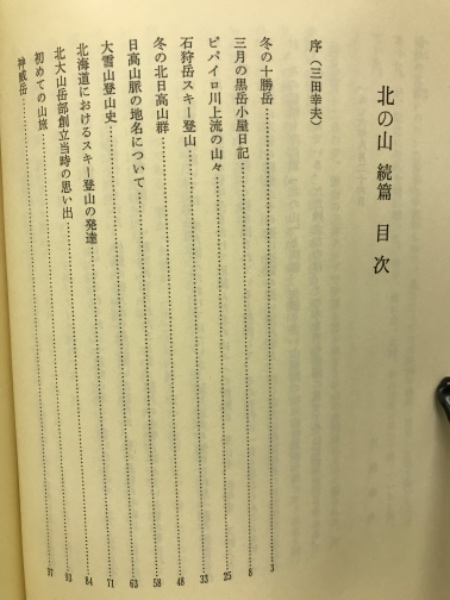 北の山 続篇 目次
序(三田幸夫)
冬の十勝岳……3
三月の黒岳小屋日記……8
ピパイロ川上流の山々……25
石狩岳スキー登山……33
冬の北日高山群……48
日高山脈の地名について……58
大雪山登山史……63
北海道におけるスキー登山の発達……71
北大山岳部創立当時の思い出……84
初めての山旅……93
神威岳……97